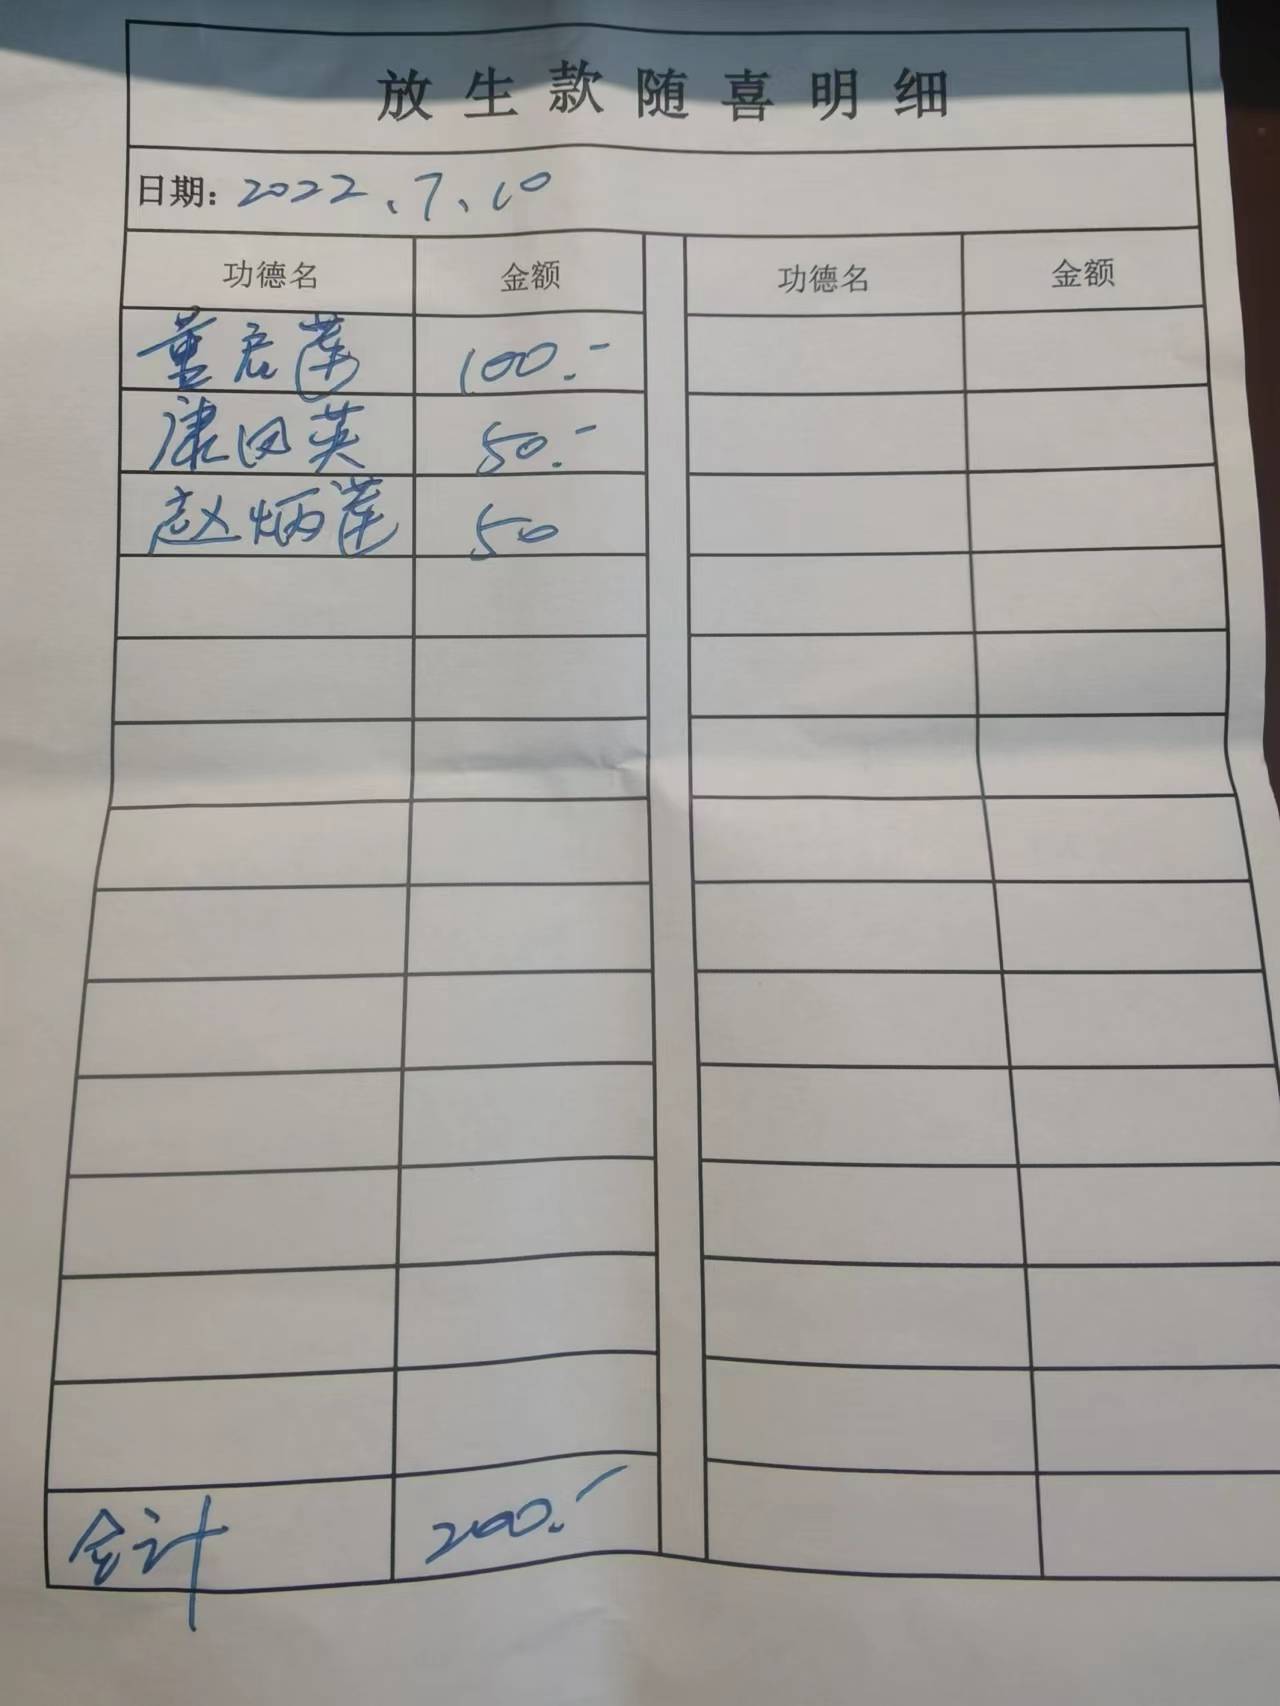 放生款随喜明细
日期: 2022、7、10
功德名 金额 功德名 金额
董启莲 100.-
康田英 50.-
赵炳莲 50
合计 200.-